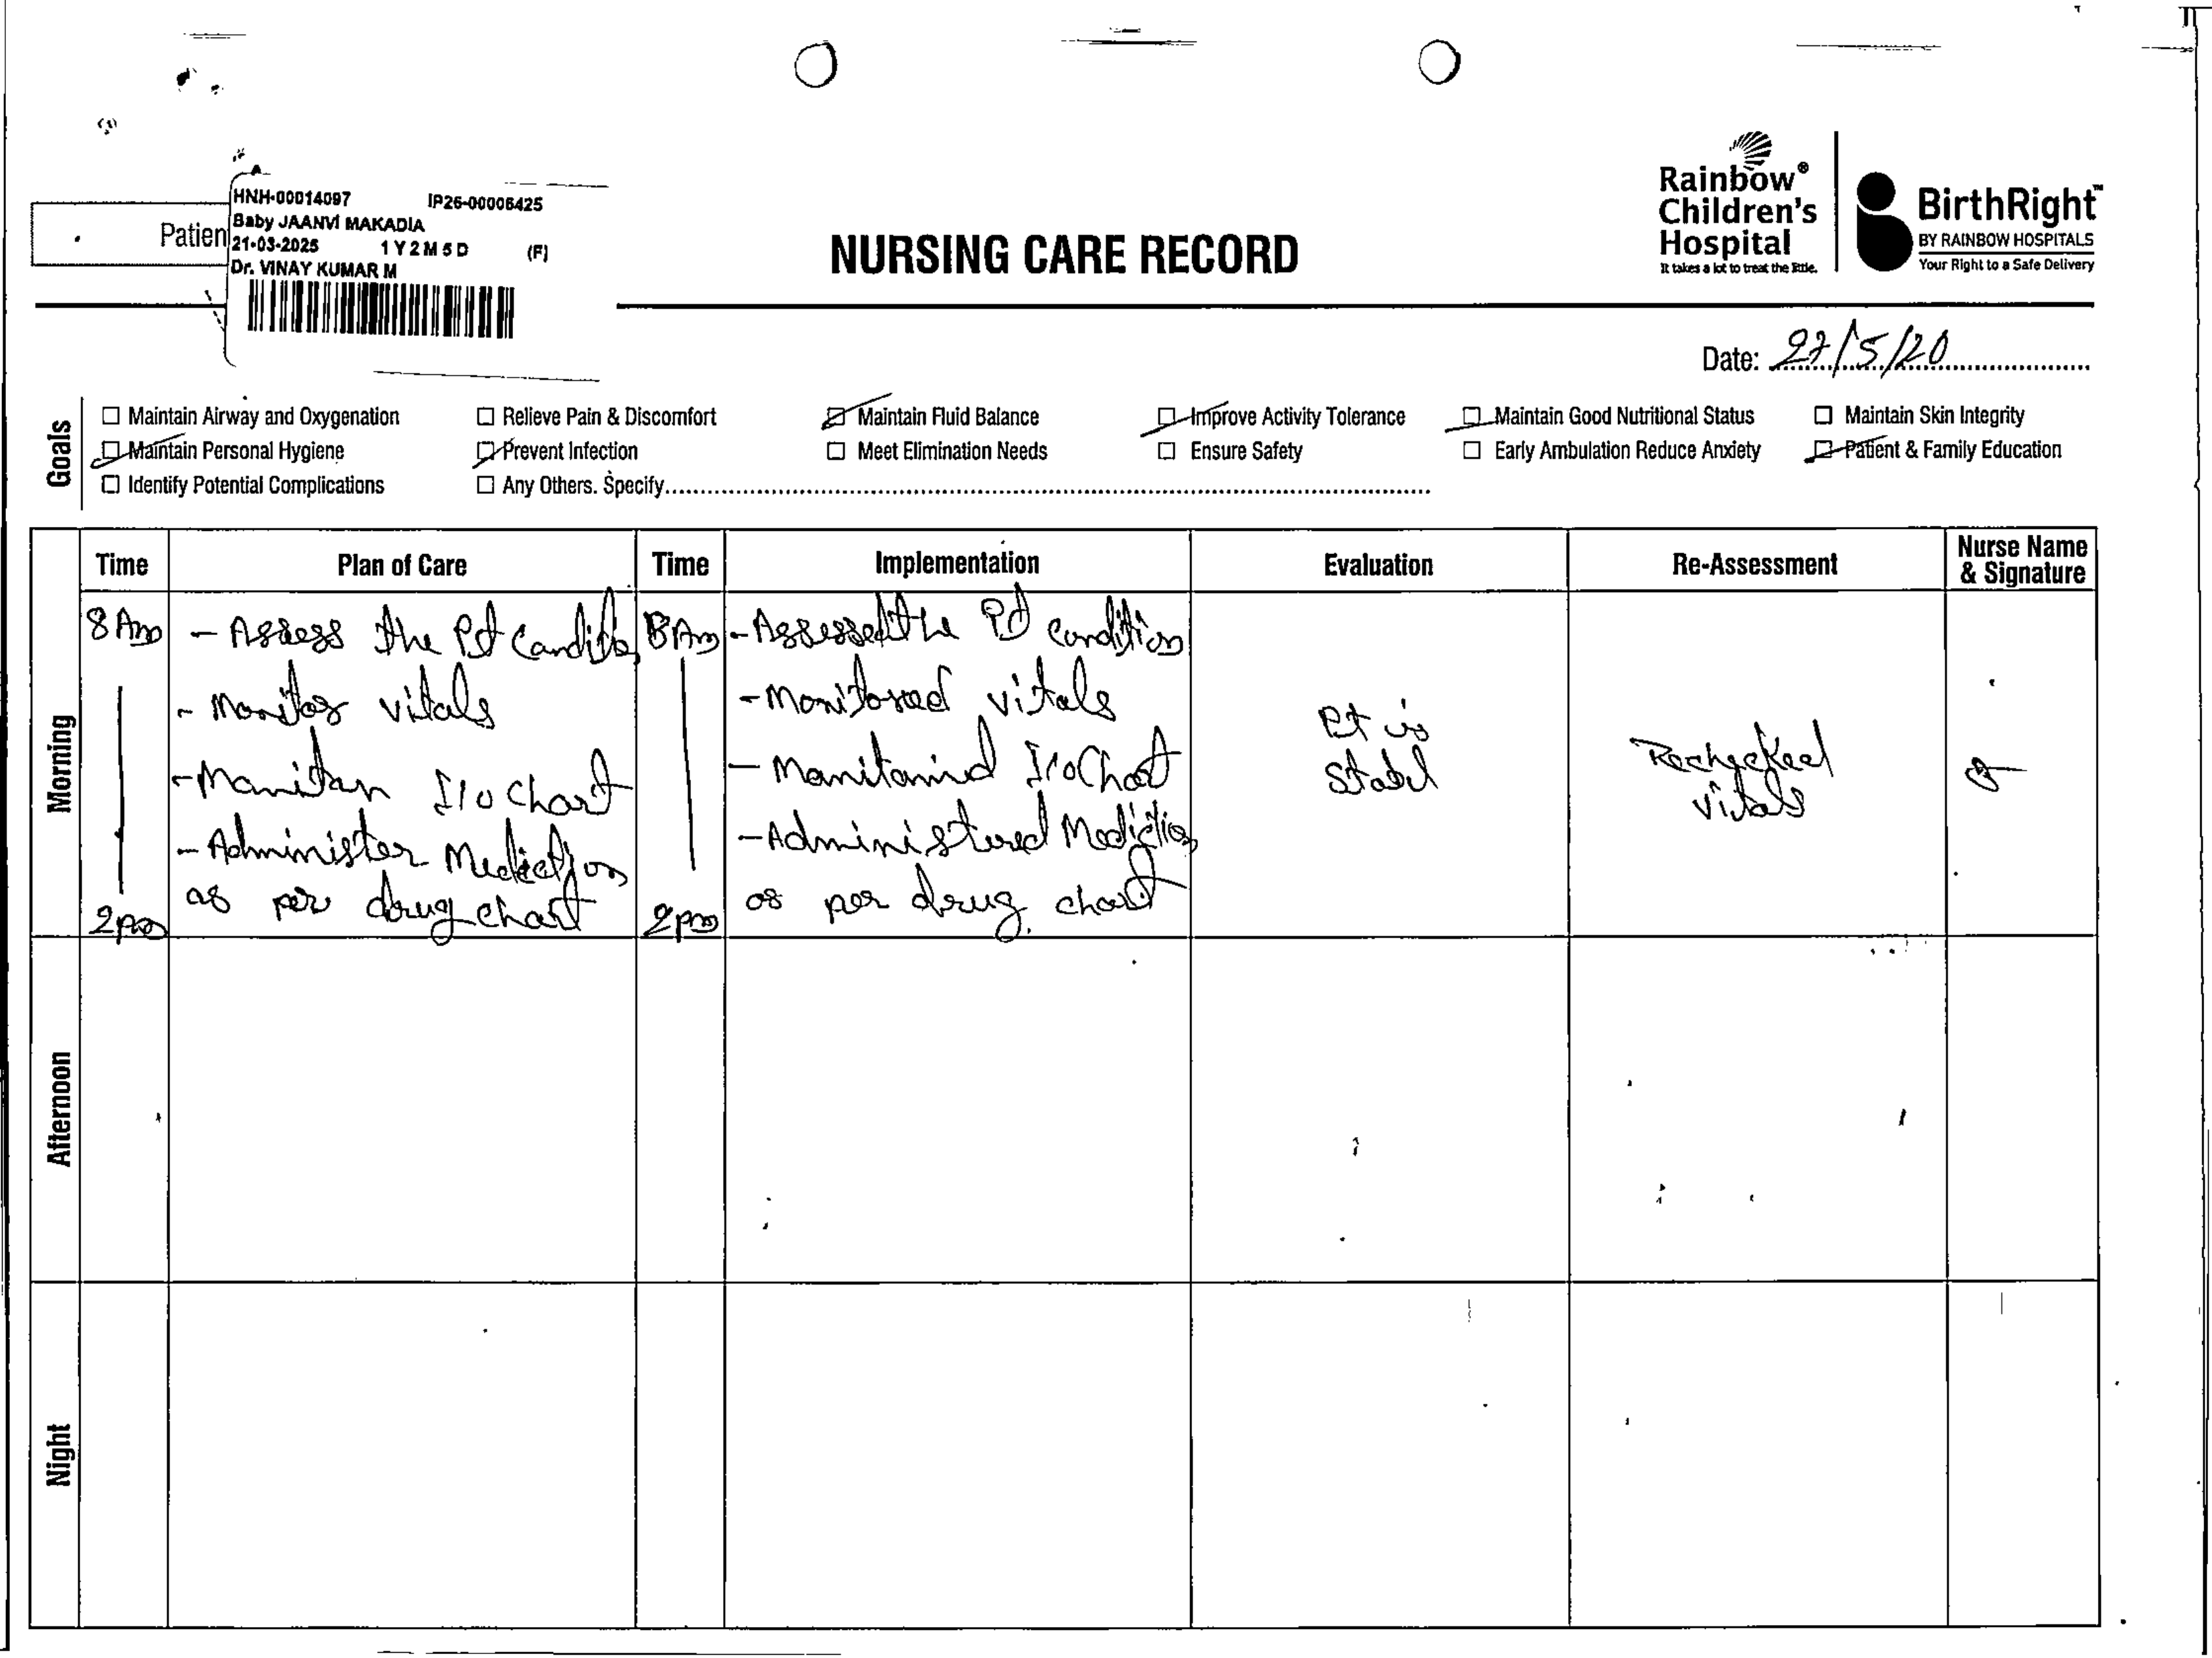 HNH-00014097 IP26-00006425
Baby JAANVI MAKADIA
21-03-2025 1 Y 2 M 5 D (F)
Dr. VINAY KUMAR M
Patien
NURSING CARE RECORD
Rainbow®
Children's
Hospital
It takes a lot to treat the little.
BirthRight™
BY RAINBOW HOSPITALS
Your Right to a Safe Delivery
Date: 27/5/20
Goals
Maintain Airway and Oxygenation Relieve Pain & Discomfort Maintain Fluid Balance Improve Activity Tolerance Maintain Good Nutritional Status Maintain Skin Integrity
Maintain Personal Hygiene Prevent Infection Meet Elimination Needs Ensure Safety Early Ambulation Reduce Anxiety Patient & Family Education
Identify Potential Complications Any Others. Specify
Time Plan of Care Time Implementation Evaluation Re-Assessment Nurse Name & Signature
Morning
8 Am - Assess the Pt Condition
- Monitor vitals
- Manitan I/O Chart
- Administer Medication
as per drug chart
2pm
8 Am - Assessed the Pt condition
- Monitored vitals
- Manitanied I/O Chart
- Administered Mediction
as per drug chart
2pm
Pt is
Stabel
Rechecked
vitals
Afternoon
Night